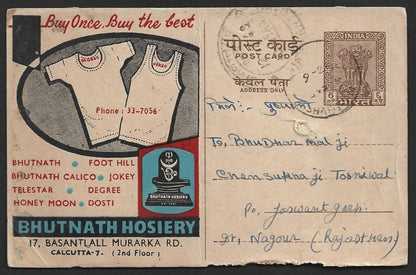 Buy Once. Buy the best
DEGREE
JOKEY
Phone: 33-7056
BHUTNATH • FOOT HILL
BHUTNATH CALICO • JOKEY
TELESTAR • DEGREE
HONEY MOON • DOSTI
BHUTNATH HOSIERY
BHUTNATH HOSIERY
17, BASANTLALL MURARKA RD.
CALCUTTA-7. (2nd Floor)
पोस्ट कार्ड
POST CARD
केवल पता
ADDRESS ONLY
INDIA
6
भारत
To, Bhudhar mal ji
Tosniwal
Po, Jaswantgarh
Nagour (Rajasthan)